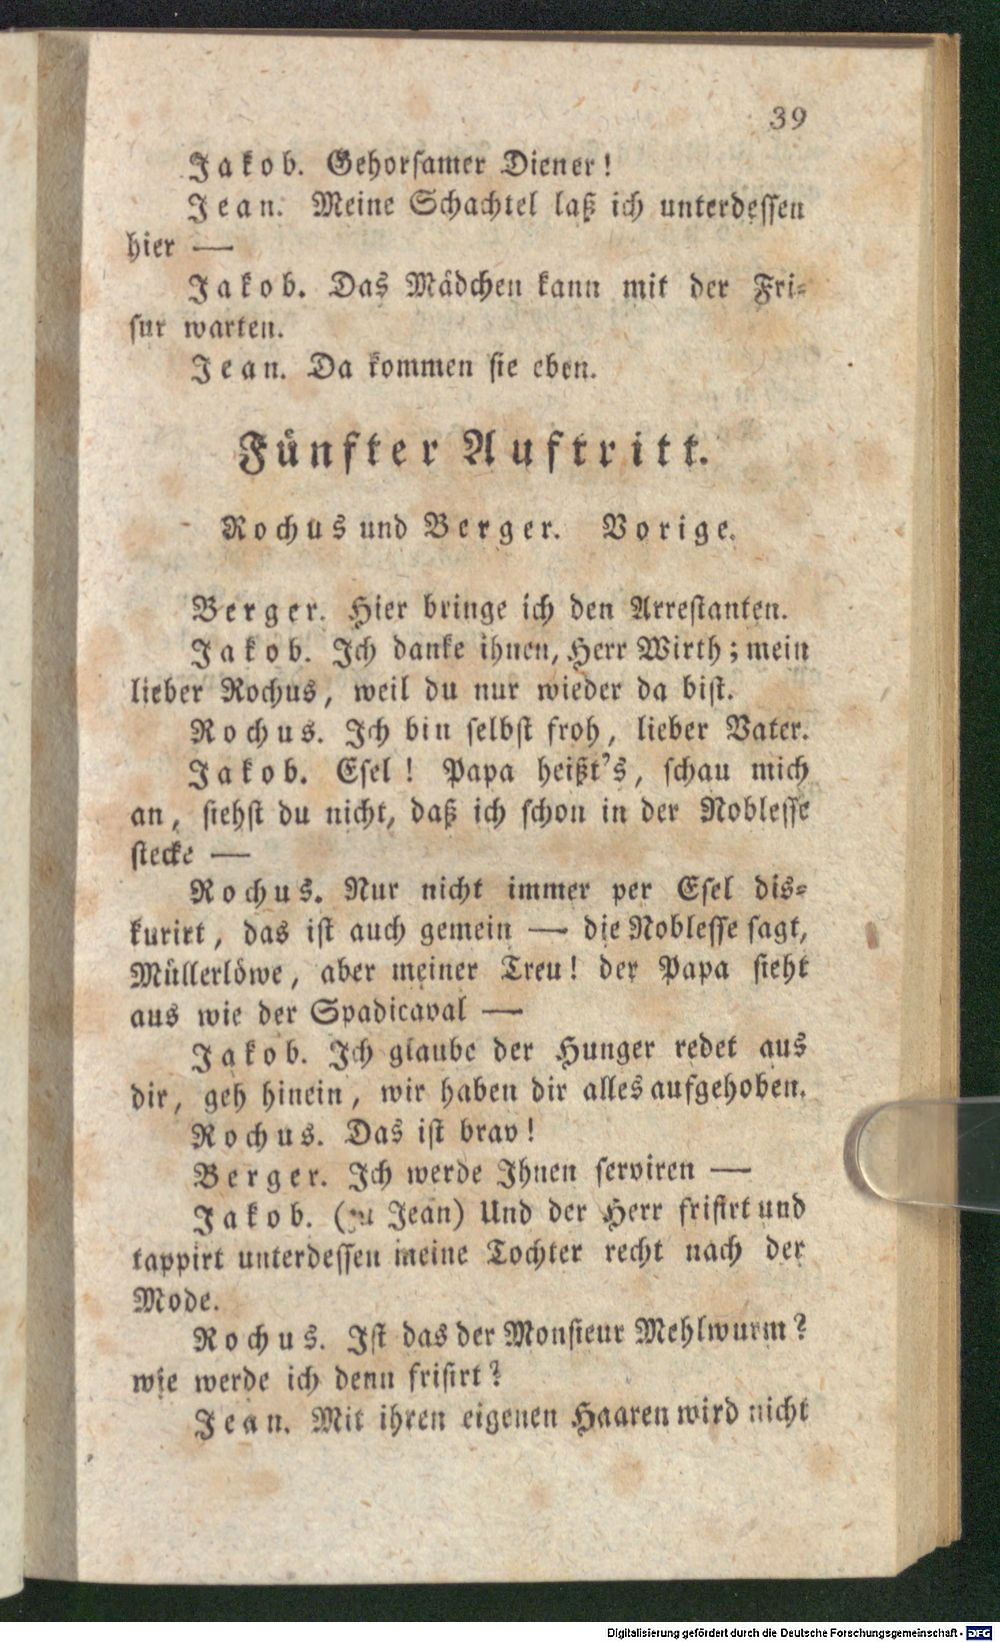 39
Jakob. Gehorsamer Diener!
Jean. Meine Schachtel laß ich unterdessen
hier —
Jakob. Das Mädchen kann mit der Fri-
sur warten.
Jean. Da kommen sie eben.
Fünfter Auftritt.
Rochus und Berger. Vorige.
Berger. Hier bringe ich den Arrestanten.
Jakob. Ich danke ihnen, Herr Wirth; mein
lieber Rochus, weil du nur wieder da bist.
Rochus. Ich bin selbst froh, lieber Vater.
Jakob. Esel! Papa heißt's, schau mich
an, siehst du nicht, daß ich schon in der Noblesse
stecke —
Rochus. Nur nicht immer per Esel dis-
kurirt, das ist auch gemein — die Noblesse sagt,
Müllerlöwe, aber meiner Treu! der Papa sieht
aus wie der Spadicaval —
Jakob. Ich glaube der Hunger redet aus
dir, geh hinein, wir haben dir alles aufgehoben.
Rochus. Das ist brav!
Berger. Ich werde Ihnen serviren —
Jakob. (zu Jean) Und der Herr frisirt und
tappirt unterdessen meine Tochter recht nach der
Mode.
Rochus. Ist das der Monsieur Mehlwurm?
wie werde ich denn frisirt?
Jean. Mit ihren eigenen Haaren wird nicht
Digitalisierung gefördert durch die Deutsche Forschungsgemeinschaft - DFG